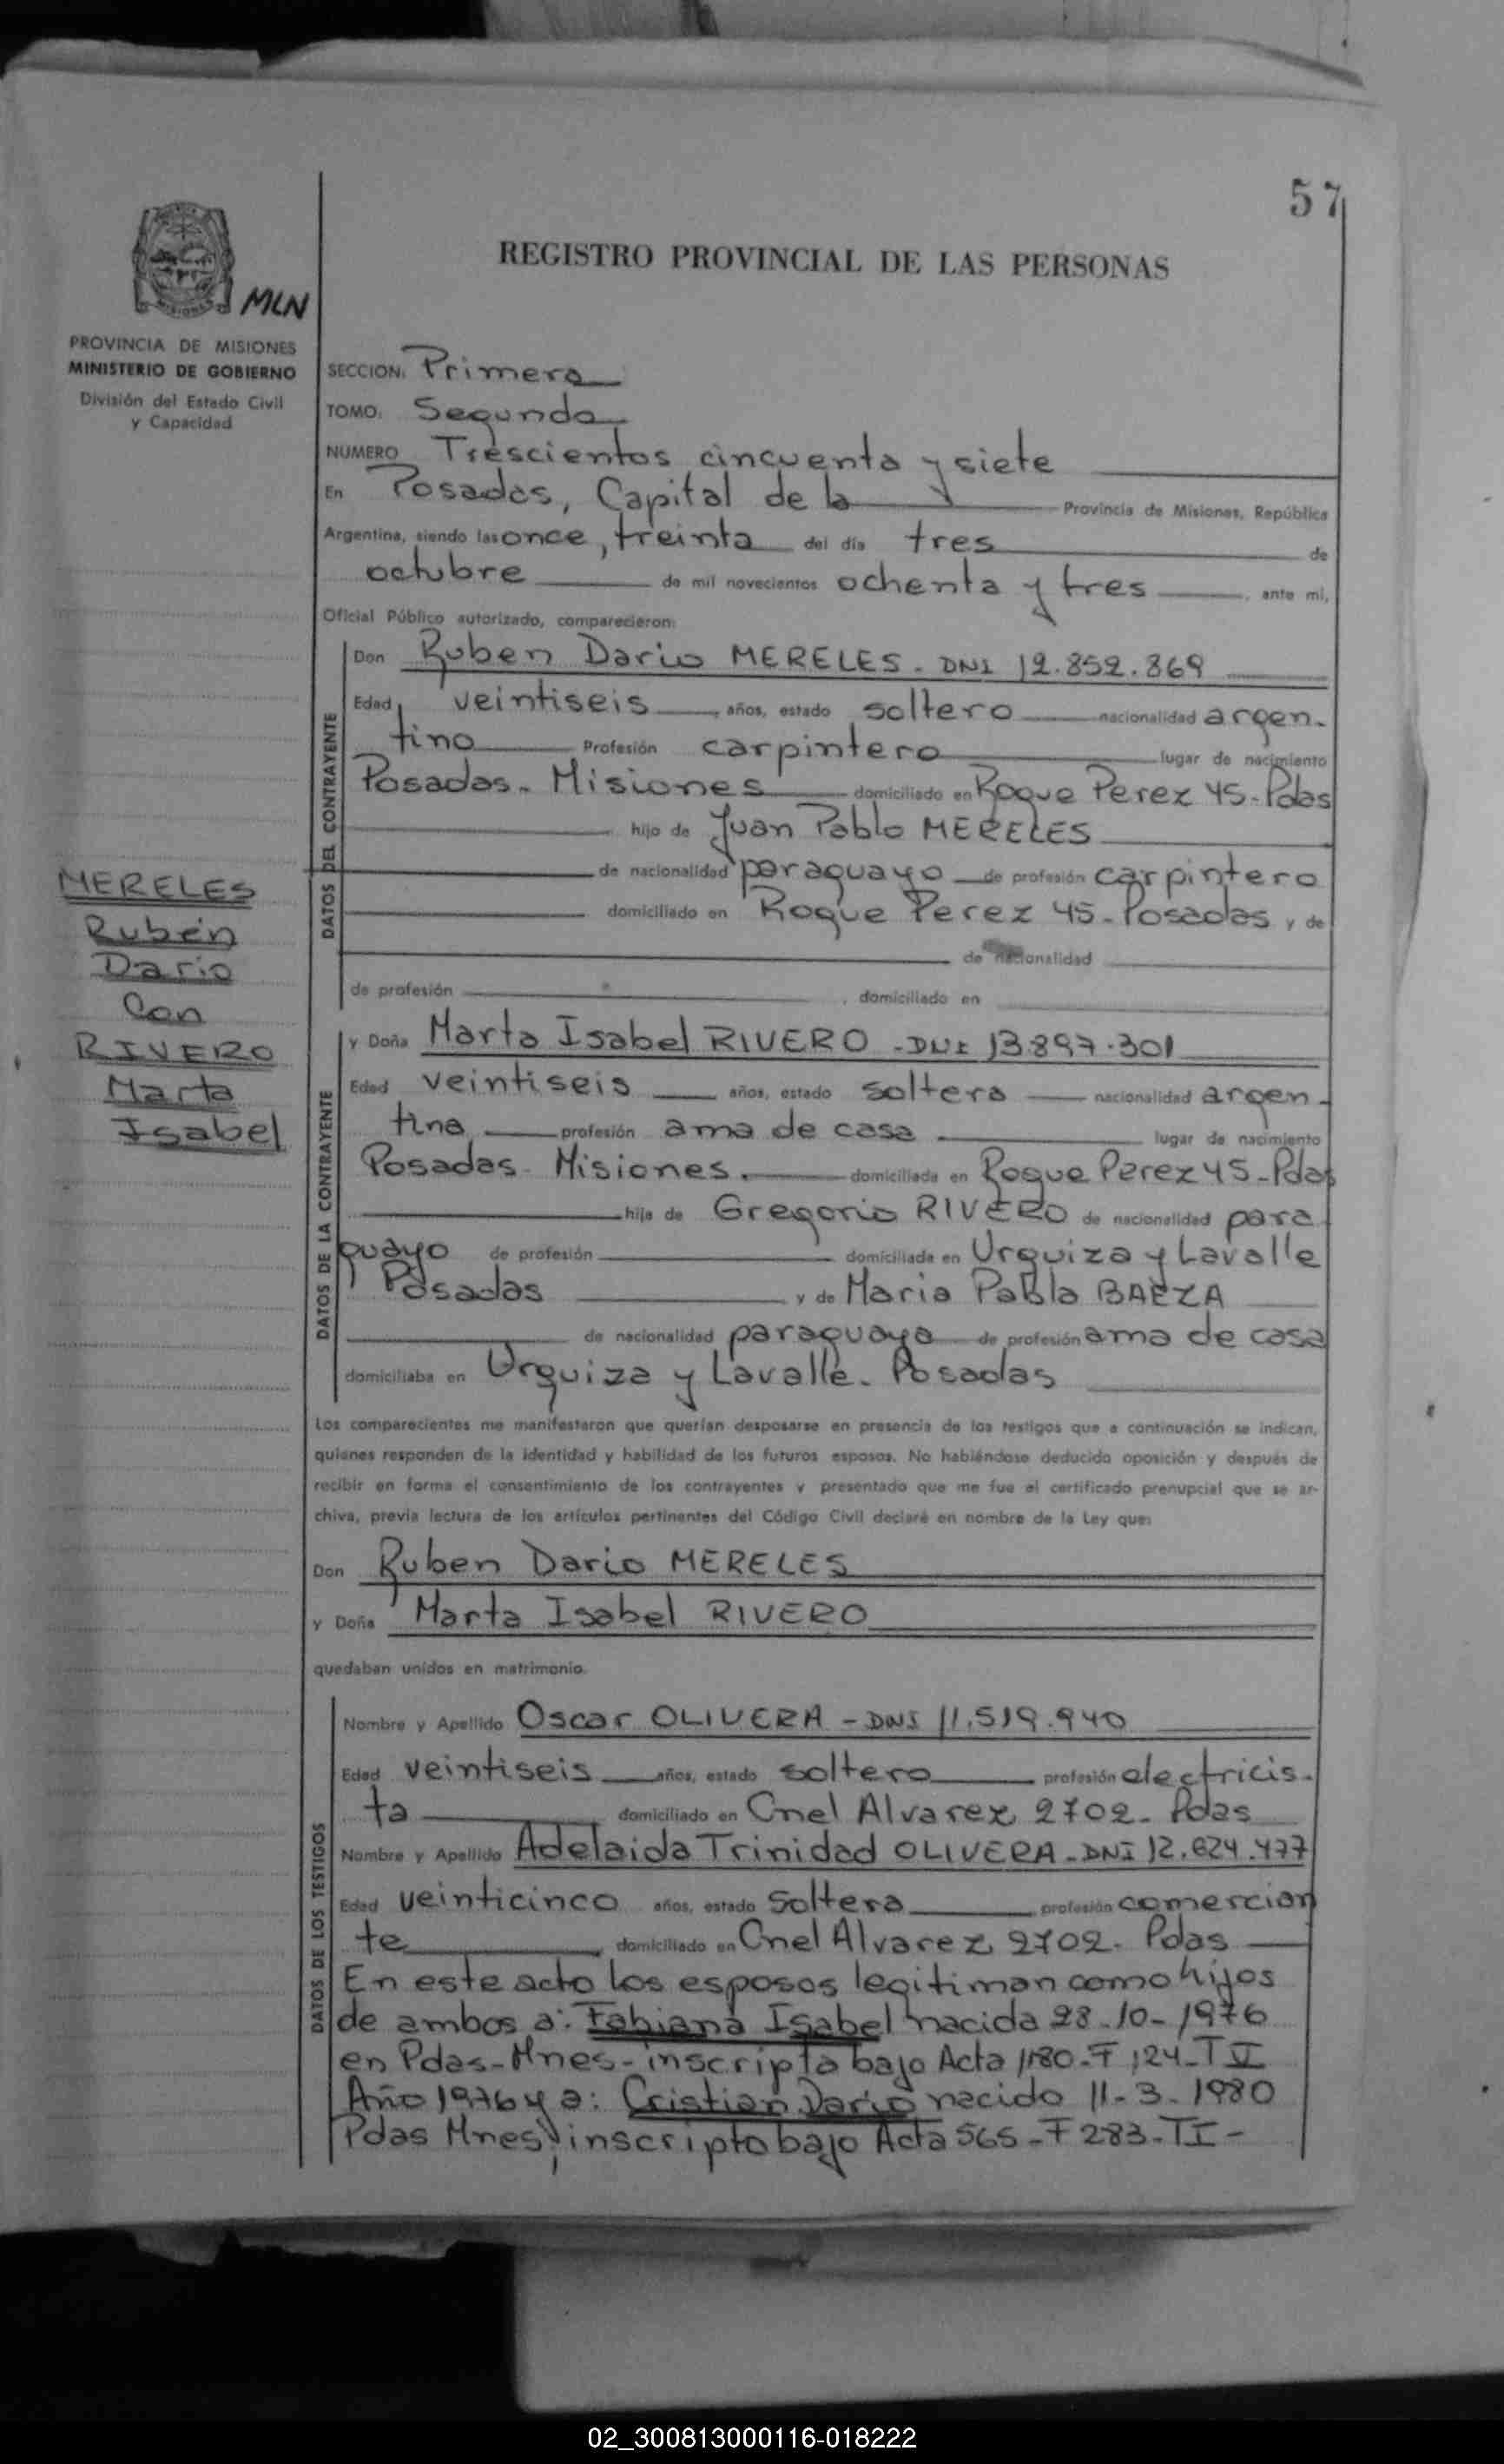 57
REGISTRO PROVINCIAL DE LAS PERSONAS
MLN
PROVINCIA DE MISIONES
MINISTERIO DE GOBIERNO
División del Estado Civil
y Capacidad
SECCION: Primera
TOMO: Segundo
NUMERO Trescientos cincuenta y siete
En Posadas, Capital de la Provincia de Misiones, República
Argentina, siendo las once, treinta del día tres de
octubre de mil novecientos ochenta y tres, ante mí,
Oficial Público autorizado, comparecieron:
DATOS DEL CONTRAYENTE
Don Ruben Dario MERELES - DNI 12.852.869
Edad veintiseis años, estado soltero nacionalidad argen-
tino Profesión carpintero lugar de nacimiento
Posadas - Misiones domiciliado en Roque Perez 45 - Pdas
hijo de Juan Pablo MERELES
de nacionalidad paraguayo de profesión carpintero
domiciliado en Roque Perez 45 - Posadas y de
de nacionalidad
de profesión , domiciliado en
MERELES
Rubén
Dario
Con
RIVERO
Marta
Isabel
DATOS DE LA CONTRAYENTE
y Doña Marta Isabel RIVERO - DNI 13.897.301
Edad veintiseis años, estado soltera nacionalidad argen-
tina profesión ama de casa lugar de nacimiento
Posadas - Misiones. domiciliada en Roque Perez 45 - Pdas
hija de Gregorio RIVERO de nacionalidad para
guayo de profesión domiciliada en Urquiza y Lavalle
Posadas y de Maria Pabla BAEZA
de nacionalidad paraguaya de profesión ama de casa
domiciliaba en Urquiza y Lavalle - Posadas
Los comparecientes me manifestaron que querían desposarse en presencia de los testigos que a continuación se indican,
quienes responden de la identidad y habilidad de los futuros esposos. No habiéndose deducido oposición y después de
recibir en forma el consentimiento de los contrayentes y presentado que me fue el certificado prenupcial que se ar-
chiva, previa lectura de los artículos pertinentes del Código Civil declaré en nombre de la Ley que:
Don Ruben Dario MERELES
y Doña Marta Isabel RIVERO
quedaban unidos en matrimonio.
DATOS DE LOS TESTIGOS
Nombre y Apellido Oscar OLIVERA - DNI 11.519.940
Edad veintiseis años, estado soltero profesión electricis-
ta domiciliado en Cnel Alvarez 2702 - Pdas
Nombre y Apellido Adelaida Trinidad OLIVERA - DNI 12.624.477
Edad veinticinco años, estado Soltera profesión comercian
te domiciliado en Cnel Alvarez 2702 - Pdas
En este acto los esposos legitiman como hijos
de ambos a: Fabiana Isabel nacida 28-10-1976
en Pdas - Mnes - inscripta bajo Acta 1180 - F 124 - T V
Año 1976 y a: Cristian Dario nacido 11-3-1980
Pdas Mnes, inscripto bajo Acta 565 - F 283 - TI -
02_300813000116-018222